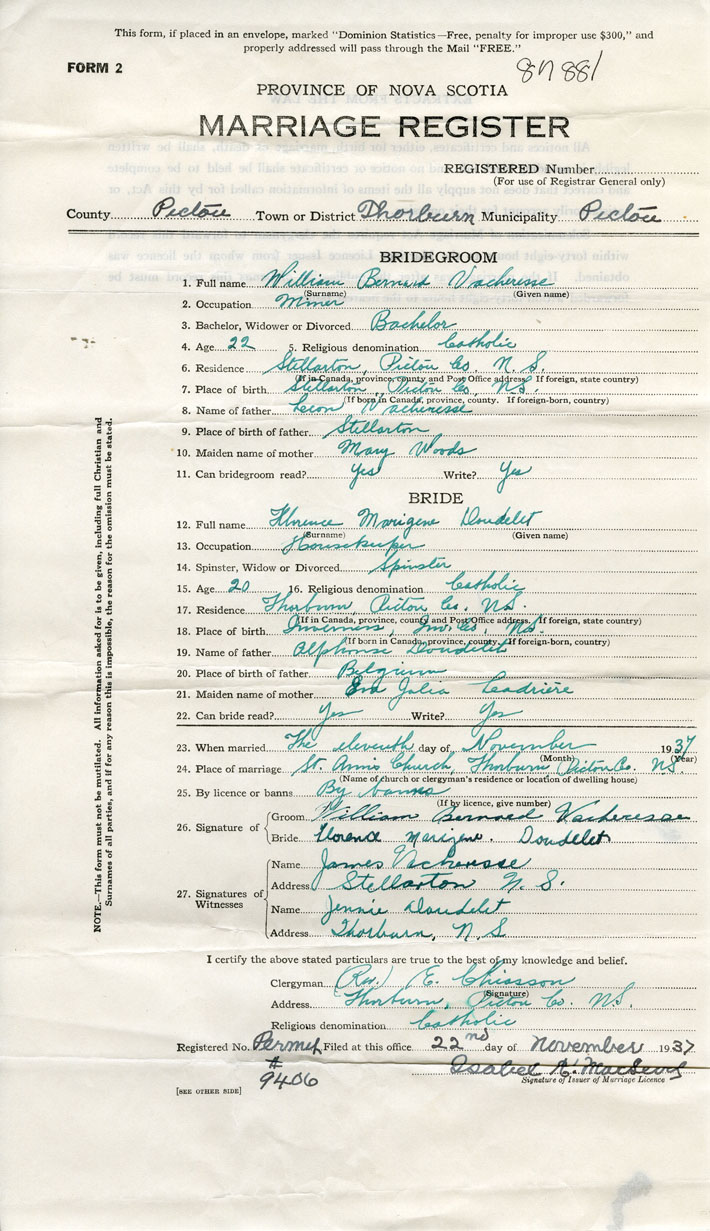 This form, if placed in an envelope, marked "Dominion Statistics—Free, penalty for improper use $300," and
properly addressed will pass through the Mail "FREE."
FORM 2
87881
PROVINCE OF NOVA SCOTIA
MARRIAGE REGISTER
REGISTERED Number
(For use of Registrar General only)
County Pictou Town or District Thorburn Municipality Pictou
BRIDEGROOM
1. Full name William Bernard Vacheresse
(Surname) (Given name)
2. Occupation Miner
3. Bachelor, Widower or Divorced Bachelor
4. Age 22 5. Religious denomination Catholic
6. Residence Stellarton, Pictou Co. N. S.
(If in Canada, province, county and Post Office address. If foreign, state country)
7. Place of birth Stellarton, Pictou Co., N.S.
(If born in Canada, province, county. If foreign-born, country)
8. Name of father Leon Vacheresse
9. Place of birth of father Stellarton
10. Maiden name of mother Mary Woods
11. Can bridegroom read? Yes Write? Yes
BRIDE
12. Full name Florence Marigene Doudelet
(Surname) (Given name)
13. Occupation Housekeeper
14. Spinster, Widow or Divorced Spinster
15. Age 20 16. Religious denomination Catholic
17. Residence Thorburn, Pictou Co. N.S.
(If in Canada, province, county and Post Office address. If foreign, state country)
18. Place of birth Inverness, Inv. Co., N.S.
(If born in Canada, province, county. If foreign-born, country)
19. Name of father Alphonse Doudelet
20. Place of birth of father Belgium
21. Maiden name of mother Eva Julia Cadrière
22. Can bride read? Yes Write? Yes
23. When married The eleventh day of November 1937
(Month) (Year)
24. Place of marriage St. Ann's Church, Thorburn, Pictou Co. N.S.
(Name of church or clergyman's residence or location of dwelling house)
25. By licence or banns By banns
(If by licence, give number)
26. Signature of Groom William Bernard Vacheresse
Bride Florence Marigene. Doudelet
27. Signatures of Witnesses
Name James Vacheresse
Address Stellarton N. S.
Name Jennie Doudelet
Address Thorburn, N. S.
I certify the above stated particulars are true to the best of my knowledge and belief.
Clergyman (Rev.) E. Chiasson
(Signature)
Address Thorburn, Pictou Co. N.S.
Religious denomination Catholic
Registered No. Permit Filed at this office 22nd day of November 1937
# 9406
Isabel A.
Signature of Issuer of Marriage Licence
[SEE OTHER SIDE]
NOTE.—This form must not be mutilated. All information asked for is to be given, including full Christian and
Surnames of all parties, and if for any reason this is impossible, the reason for the omission must be stated.